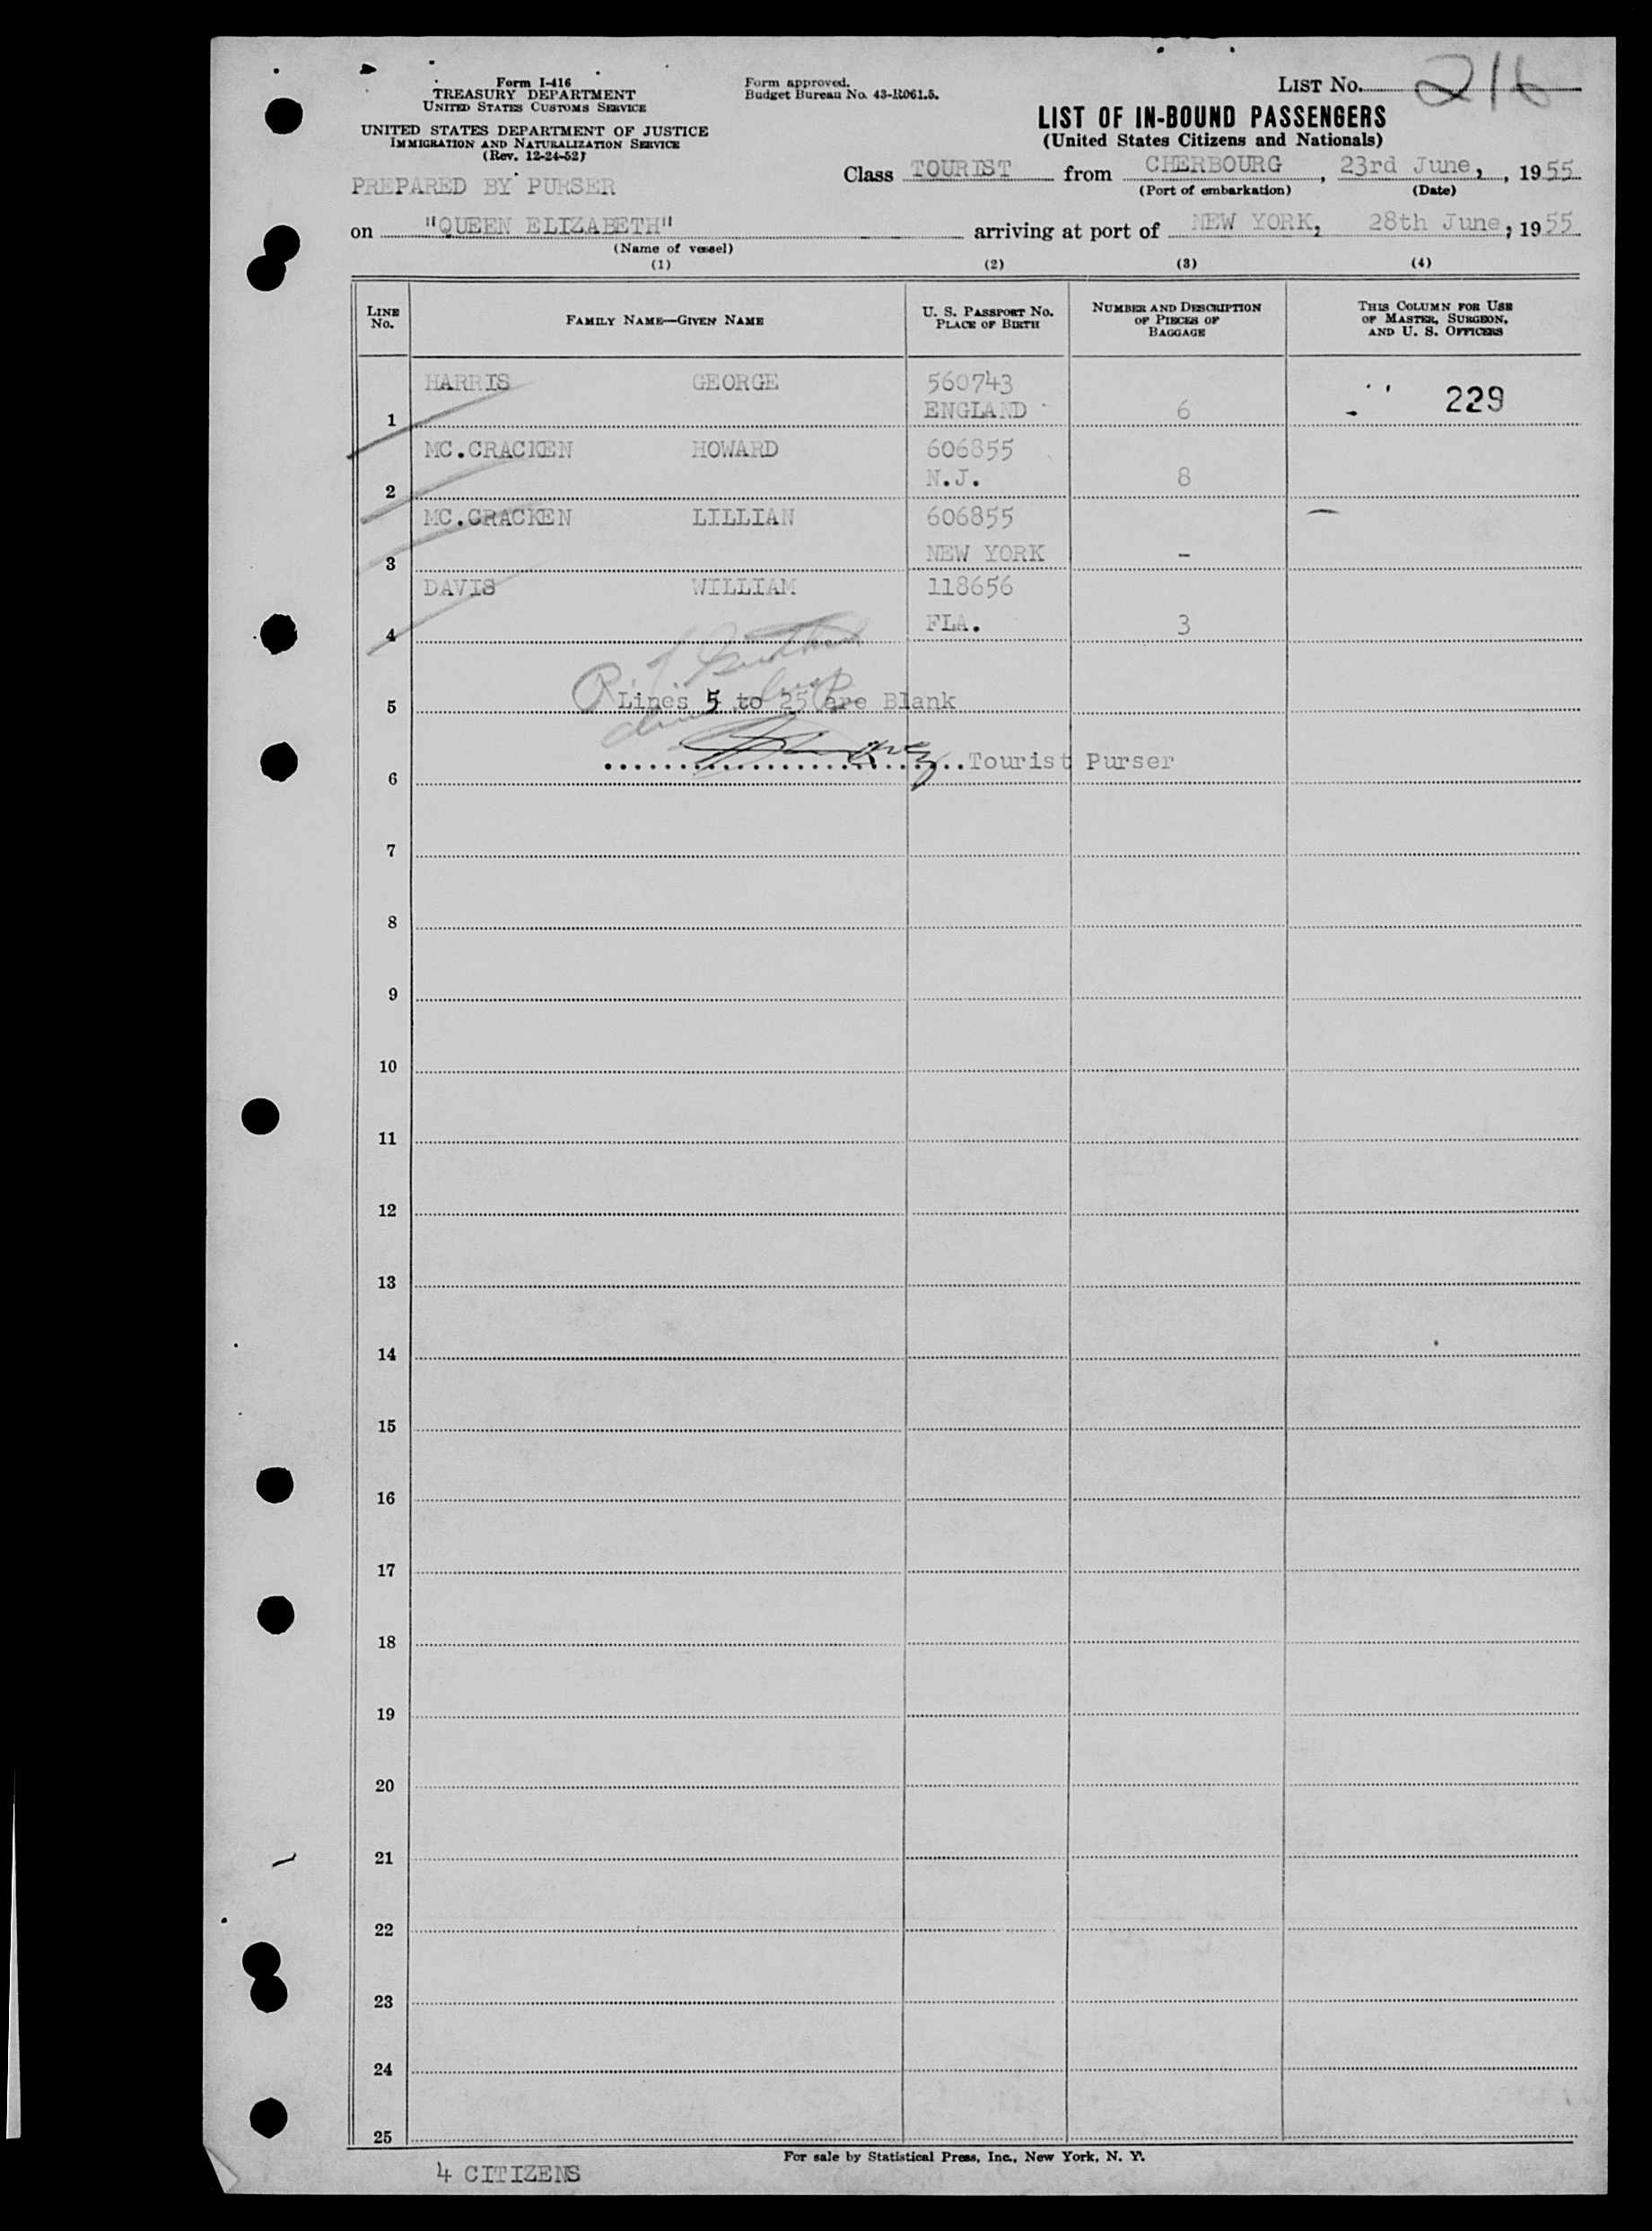 Form I-416
TREASURY DEPARTMENT
UNITED STATES CUSTOMS SERVICE
UNITED STATES DEPARTMENT OF JUSTICE
IMMIGRATION AND NATURALIZATION SERVICE
(Rev. 12-24-52)
PREPARED BY PURSER
Form approved.
Budget Bureau No. 43-R061.5.
LIST No. 216
LIST OF IN-BOUND PASSENGERS
(United States Citizens and Nationals)
Class TOURIST from CHERBOURG, 23rd June, , 1955
(Port of embarkation) (Date)
on "QUEEN ELIZABETH" arriving at port of NEW YORK, 28th June, 1955
(Name of vessel)
(1) (2) (3) (4)
LINE No. FAMILY NAME—GIVEN NAME U. S. PASSPORT No. PLACE OF BIRTH NUMBER AND DESCRIPTION OF PIECES OF BAGGAGE THIS COLUMN FOR USE OF MASTER, SURGEON, AND U. S. OFFICERS
HARRIS GEORGE 560743 229
1 ENGLAND 6
MC.CRACKEN HOWARD 606855
2 N.J. 8
MC.CRACKEN LILLIAN 606855
3 NEW YORK -
DAVIS WILLIAM 118656
4 FLA. 3
5 Lines 5 to 25 are Blank
6 Tourist Purser
7
8
9
10
11
12
13
14
15
16
17
18
19
20
21
22
23
24
25
For sale by Statistical Press, Inc., New York, N. Y.
4 CITIZENS